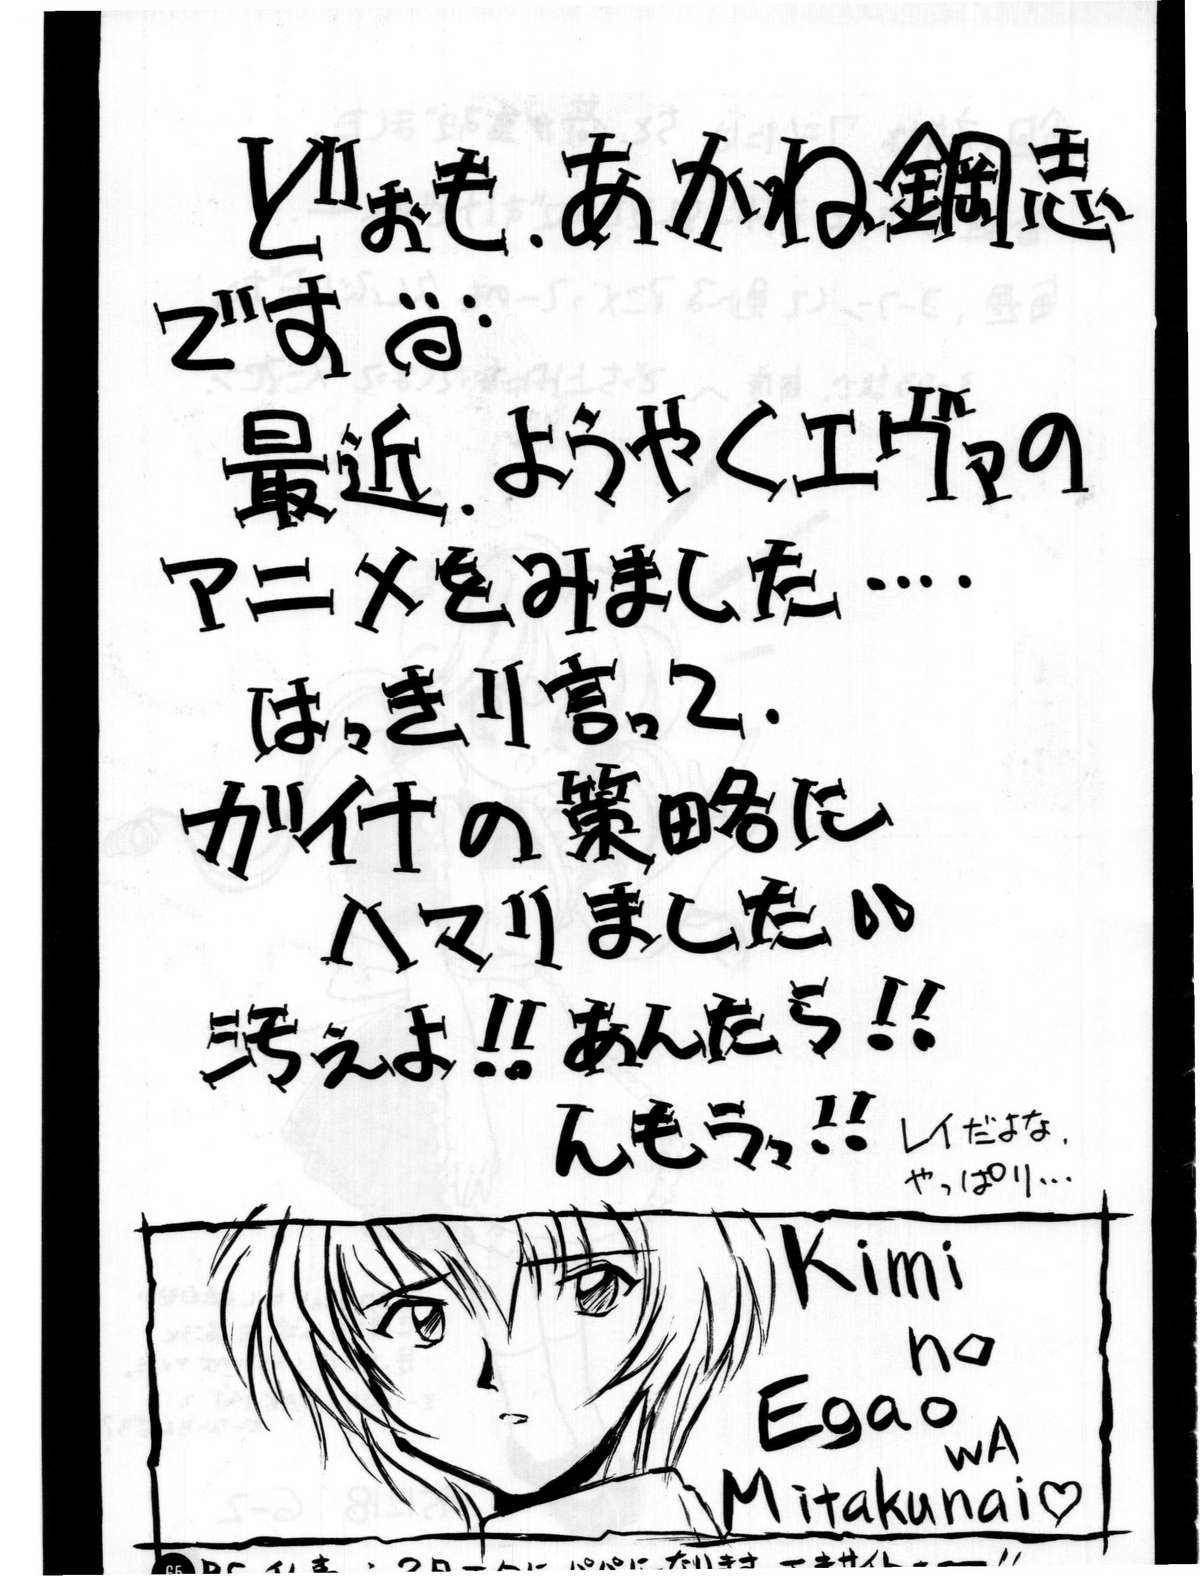 どぉも、あかね鋼志
です
最近、ようやくエヴァの
アニメをみました‥‥
はっきり言って、
ガイナの策略に
ハマりました
汚ぇよ!!あんたら!!
んもうっ!!
レイだよな、
やっぱり…
Kimi
no
Egao
WA
Mitakunai♡